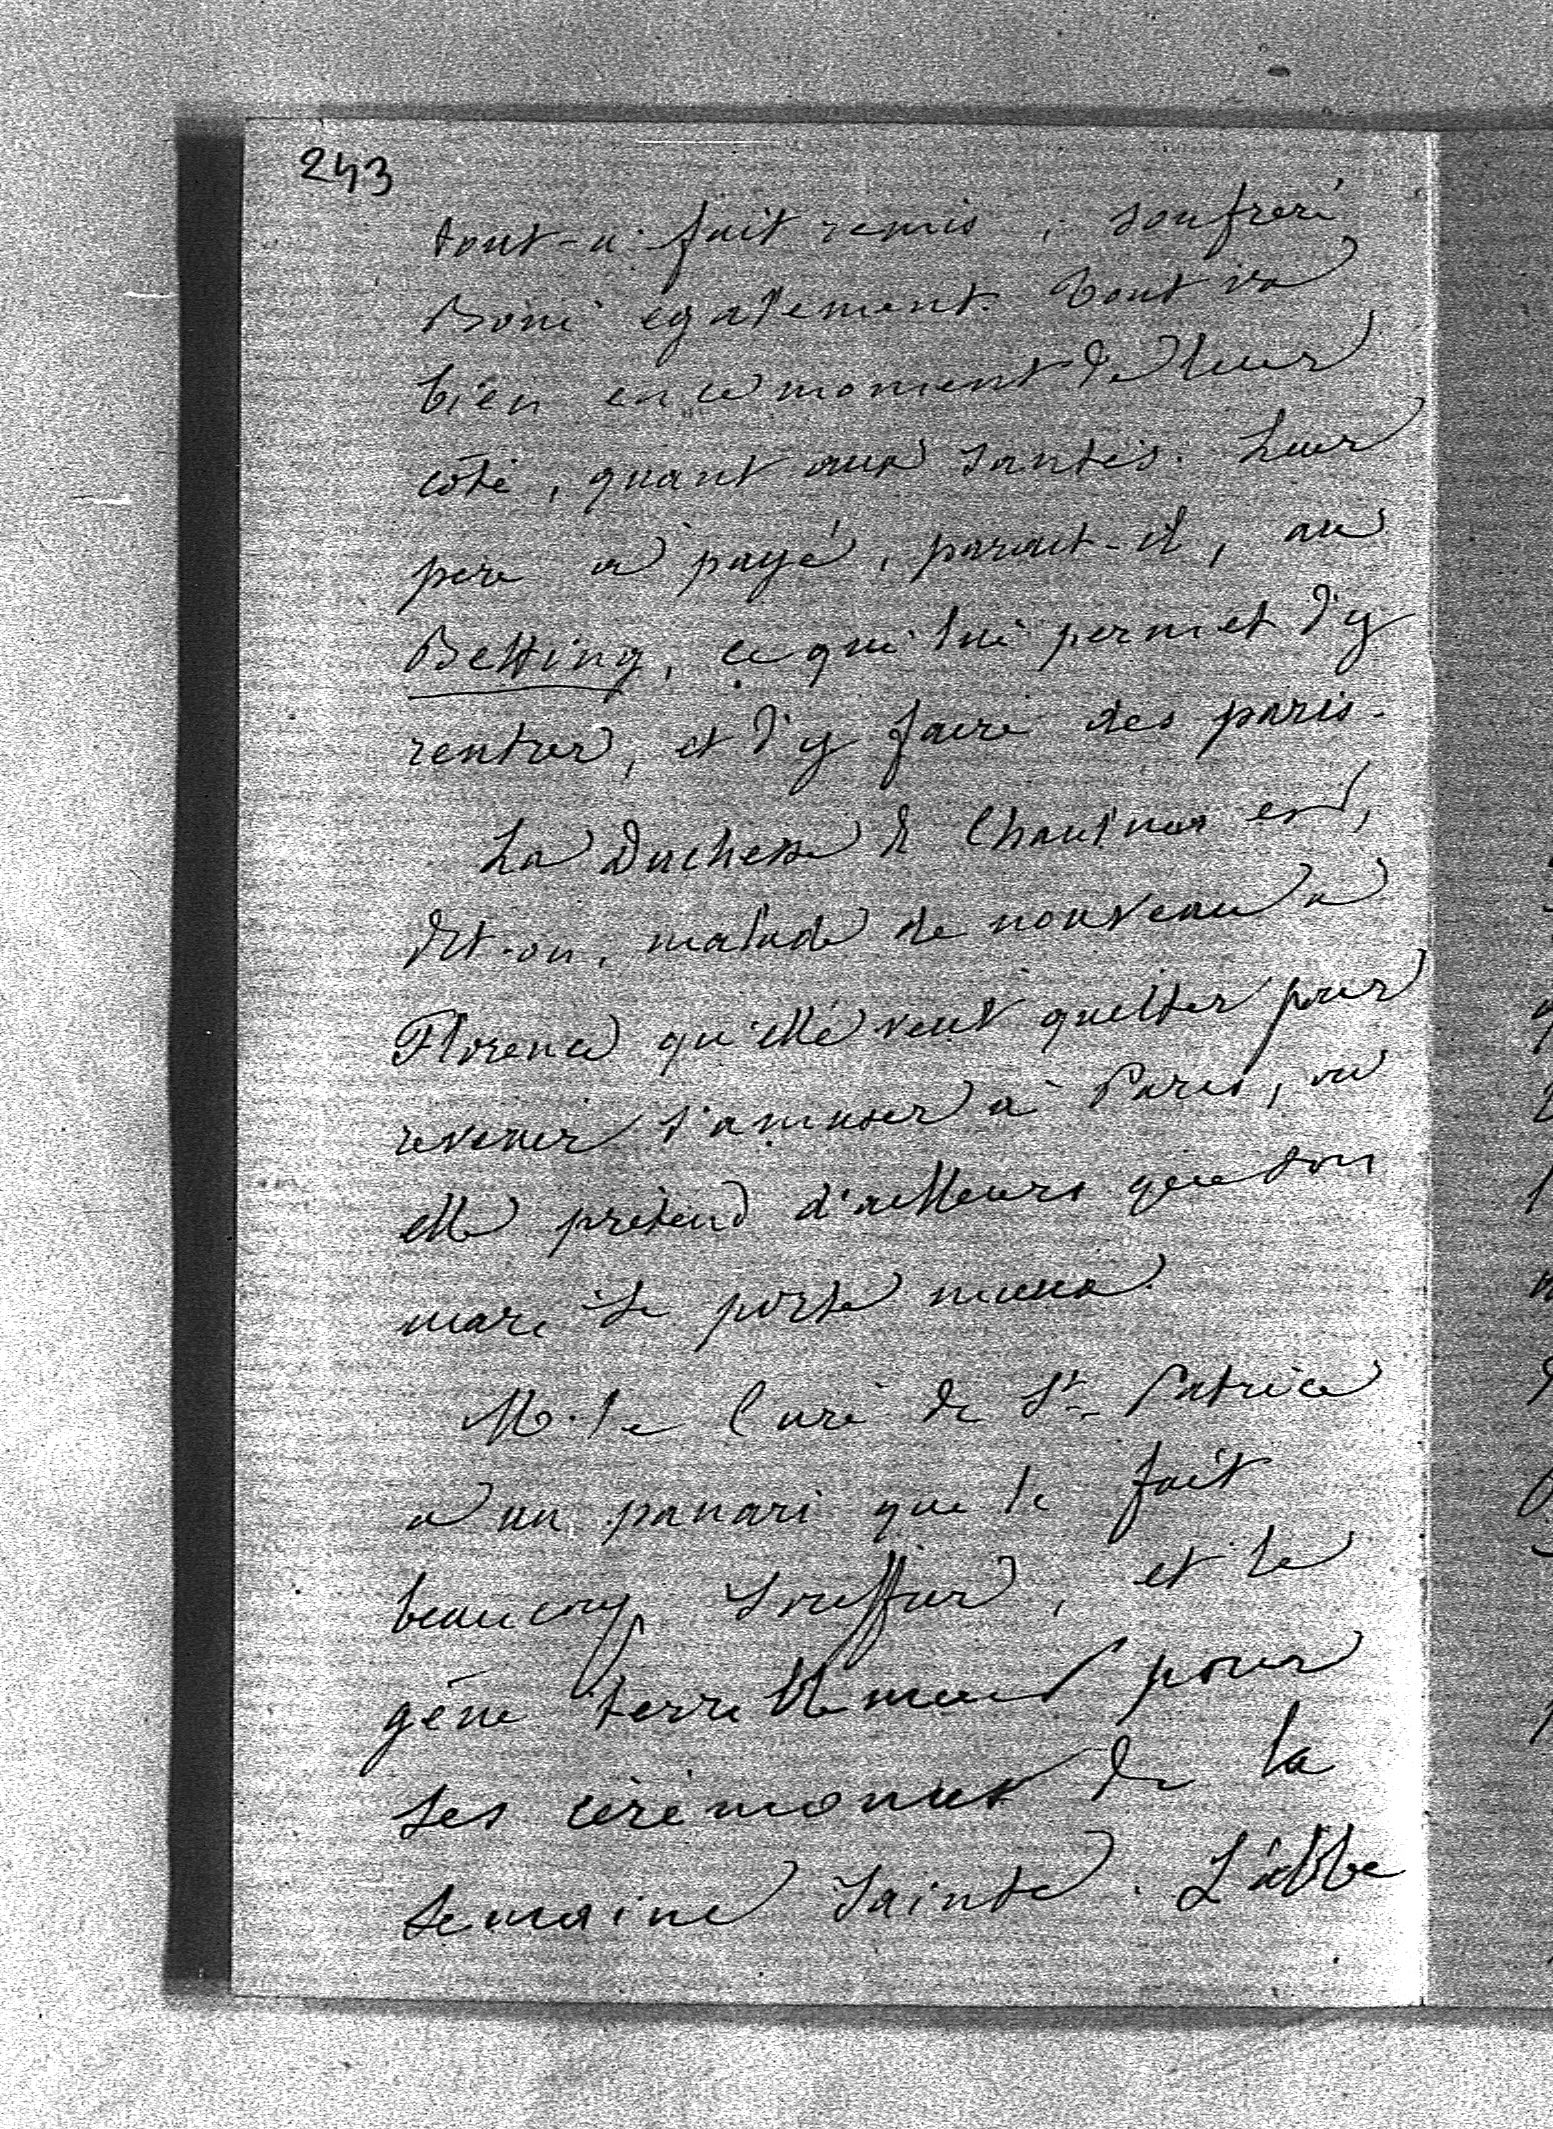 243
tout-à-fait remis, son frère
Boni également. Tout va
bien en ce moment de leur
côté, quant aux santés. Leur
père a payé, parait-il, au
Betting, ce qui lui permet d'y
rentrer, et d'y faire des paris.
La Duchesse de Chaulnes est,
dit-on, malade de nouveau à
Florence qu'elle veut quitter pour
revenir s'amuser à Paris, où
elle prétend d'ailleurs que son
mari se porte mieux.
M. le Curé de St Patrice
a un panari que le fait
beaucoup souffrir, et le
gêne terriblement pour
ses cérémonies de la
semaine Sainte. L'abbé